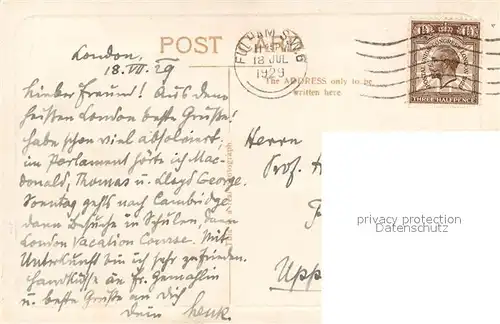 London,
18.VII.29
POST CARD
FULHAM S.W.6
18 JUL
1929
THREE HALFPENCE
The ADDRESS only to be
written here
Lieber Freund! Aus dem
heißen London beste Grüße!
habe schon viel absolviert,
im Parlament hörte ich Mac-
donald, Thomas u. Lloyd George.
Sonntag gehts nach Cambridge
dann Besuche in Schulen, dann
London Vacation Course. Mit
Unterkunft bin ich sehr zufrieden.
Handküsse an Fr. Gemahlin
u. beste Grüße an dich
dein
Herrn
Prof.
Upp
privacy protection
VINTAGE-POSTCARDS